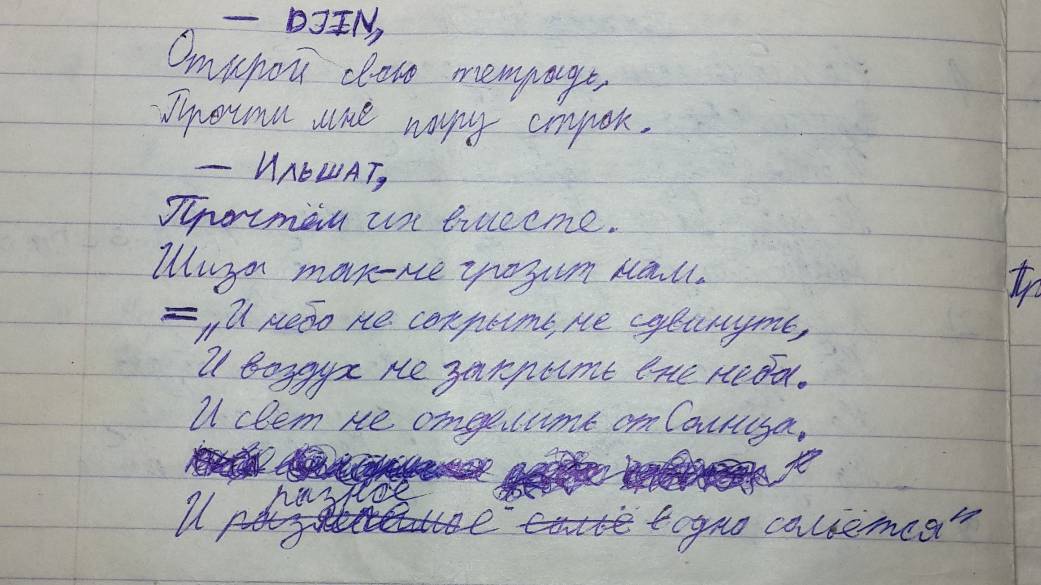 — DJIN,
Открой свою тетрадь,
Прочти мне пару строк.
— Ильшат,
Прочтём их вместе.
Шиза так-не грозит нам.
= „И небо не сокрыть, не сдвинуть,
И воздух не закрыть вне неба.
И свет не отделить от Солнца.
разное
И в одно сольётся"
Пр